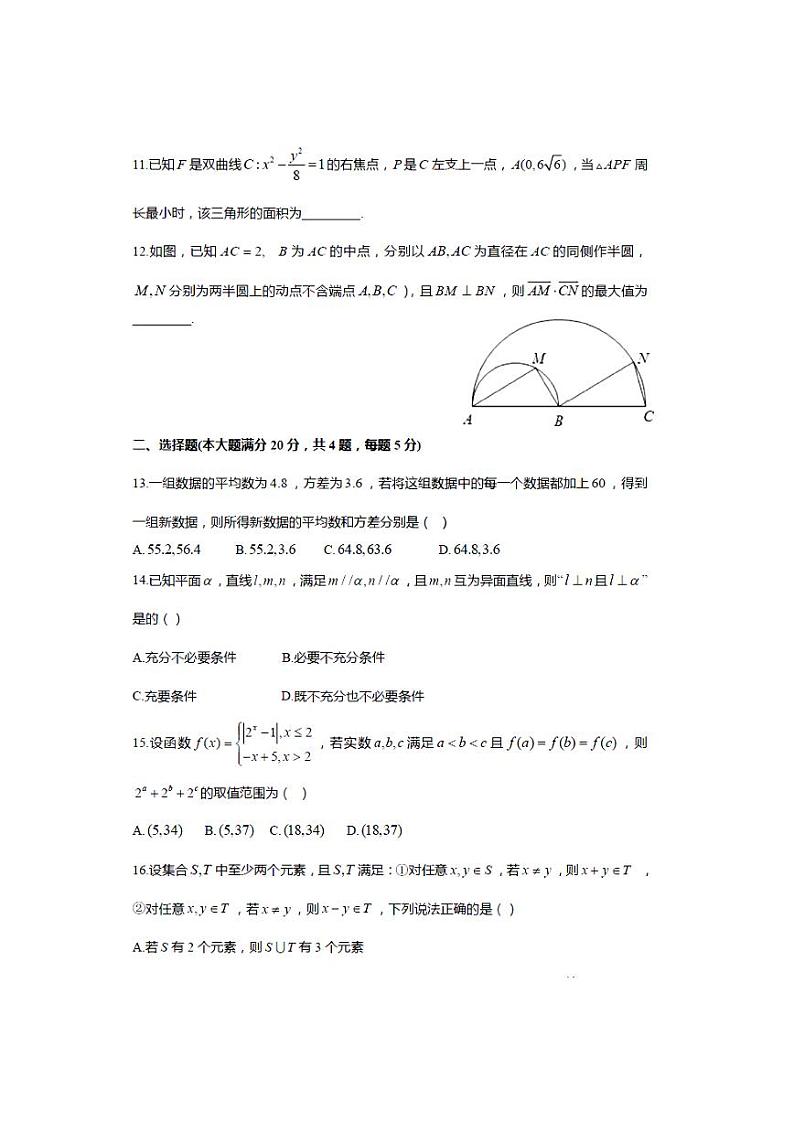 11.已知F是双曲线C:x²-y²/8=1的右焦点，P是C左支上一点，A(0,6√6)，当△APF周
长最小时，该三角形的面积为________.
12.如图，已知AC=2, B为AC的中点，分别以AB,AC为直径在AC的同侧作半圆，
M,N分别为两半圆上的动点不含端点A,B,C），且BM⊥BN，则AM·CN的最大值为
________.
M
N
A
B
C
二、选择题(本大题满分20分，共4题，每题5分)
13.一组数据的平均数为4.8，方差为3.6，若将这组数据中的每一个数据都加上60，得到
一组新数据，则所得新数据的平均数和方差分别是( )
A.55.2,56.4 B.55.2,3.6 C.64.8,63.6 D.64.8,3.6
14.已知平面α，直线l,m,n，满足m//α,n//α，且m,n互为异面直线，则“l⊥n且l⊥α”
是的( )
A.充分不必要条件 B.必要不充分条件
C.充要条件 D.既不充分也不必要条件
15.设函数f(x)={|2ˣ-1|,x≤2 -x+5,x>2，若实数a,b,c满足a<b<c且f(a)=f(b)=f(c)，则
2ᵃ+2ᵇ+2ᶜ的取值范围为( )
A.(5,34) B.(5,37) C.(18,34) D.(18,37)
16.设集合S,T中至少两个元素，且S,T满足：①对任意x,y∈S，若x≠y，则x+y∈T ，
②对任意x,y∈T，若x≠y，则x-y∈T，下列说法正确的是( )
A.若S有2个元素，则S∪T有3个元素